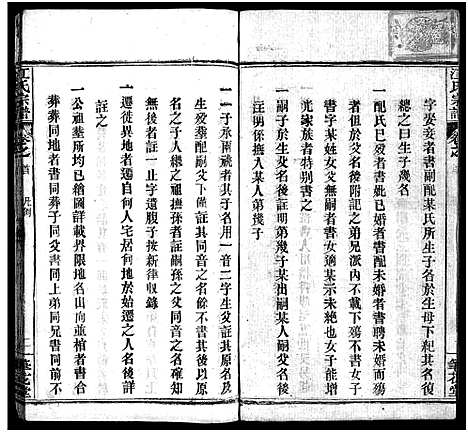 字妾者書副配某氏所生子名於生母下妃只書
總之曰生子幾名
一配氏已婚者書妣已婚者書配未婚者書聘未婚而
殤者於父名後附記之弟兄派內不載下殤不書女子
字某姓女父無嗣者書女適某示未絶也女子能
光家族者特別書之
一嗣子於嗣父名後註明第幾子某出嗣某人第幾子
注明係撫入某人第幾子
一二子承兩祧者其子名用一音二字生父註其原名及
生父㸑配嗣父下僅註其同音之名餘不書其後以原
父名之子人繼之祖撫孫者註嗣孫之父同音之名確知
無後者註一止字遺腹子按新律收錄
一遷徙異地者書自何宅居何地於始遷之人名後詳
註之
一公祖墓所均已繪圖詳載界限地名出向並棺者書合
葬葬同地者書同葬子同父書同上弟同兄書同前不
江氏宗譜
卷之首
凡例